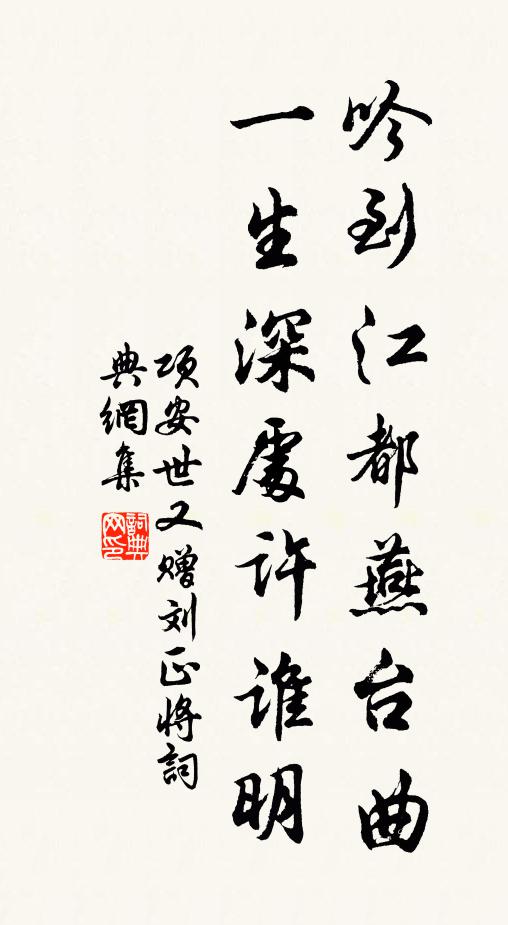 吟到江都燕台曲
一生深處许谁明
项安世又赠刘正将詞
典網集
詞典網印